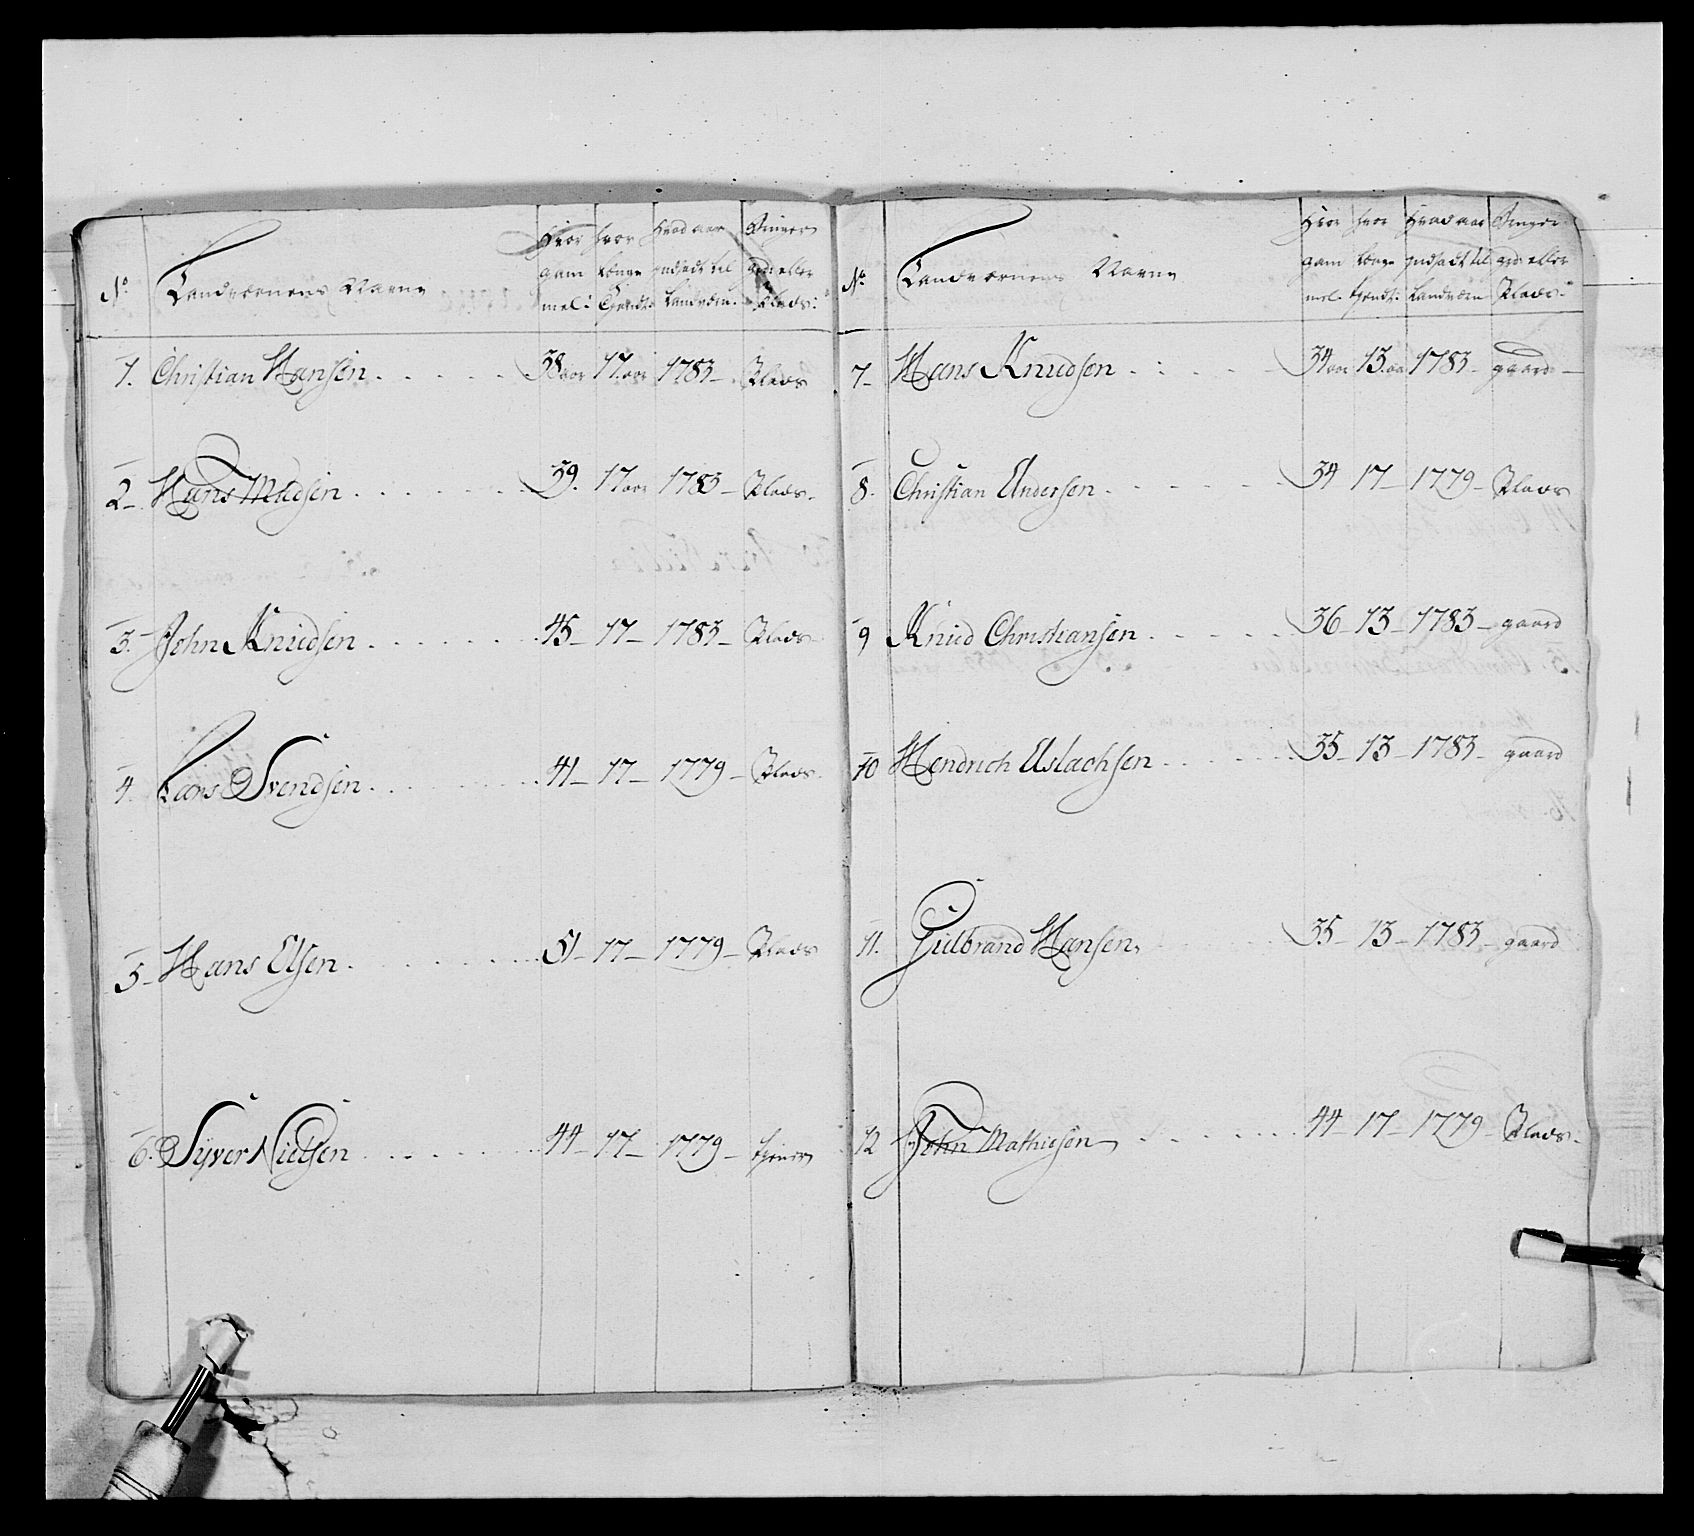 No Landværnens Navne Hvor gam mel: hvor længe Tjendt: Hvad aar indsadt til Landværn. grd eller Plads:
1. Christian Hansen. 38 aar 17. aar 1783 - Plads
2 - Hans Madsen. 39. 17 aar 1783 - Plads.
3. John Knudsen. 45 - 17 - 1783 - Plads
4. Lars Svendsen. 41 - 17 - 1779 - Plads.
5 - Hans Elsen. 51 - 17 - 1779 - Plads
6. Syver Nielsen. 44 - 17 - 1779 - tjener
No. Landværnens Navne Hvor gam mel. hvor længe tjendt: Hvad aar indsadt til Landværn grd. eller Plads:
7 - Hans Knudsen. 34 aar 13. aar 1783 - gaard
8. Christian Andersen. 34 17 - 1779 - Plads
9 Knud Christiansen. 36 - 13 - 1783 - gaard
10 Hendrich Aslachsen. 35 - 13 - 1783 - gaard
11. Gulbrand Hansen, 35 - 13 - 1783 - gaard
12 John Mathiesen 44 17 - 1779 - Plads.